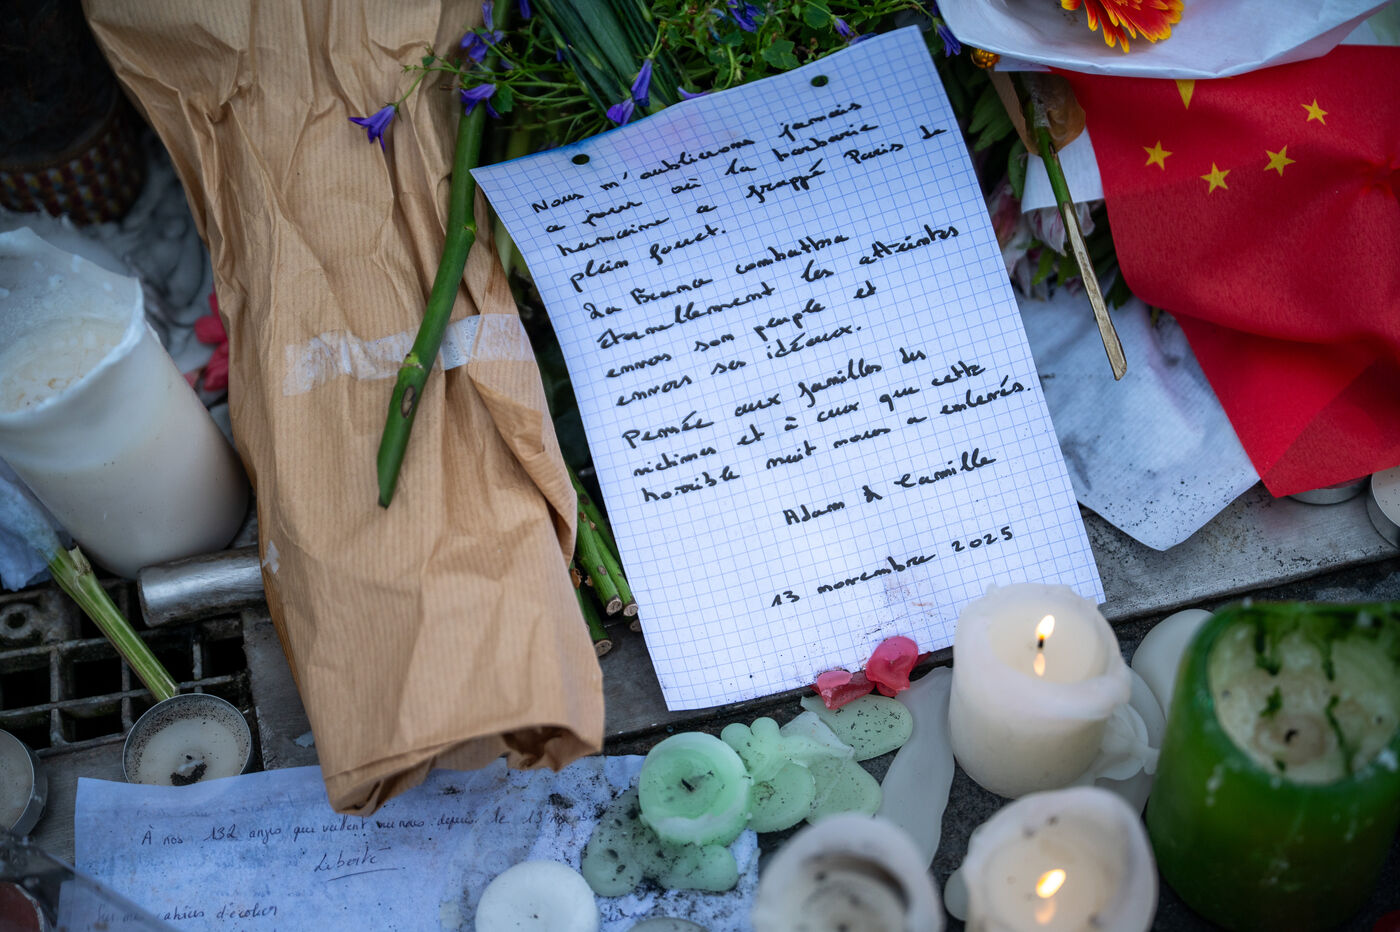 Nous n'oublierons jamais
ce jour où la barbarie
humaine a frappé Paris de
plein fouet.
La France combattra
éternellement les atteintes
envers son peuple et
envers ses idéaux.
Pensée aux familles des
victimes et à ceux que cette
horrible nuit nous a enlevés.
Adam & Camille
13 novembre 2025
À nos 132 anges qui veillent sur nous depuis le 13
Liberté
Sur mes cahiers d'écolier